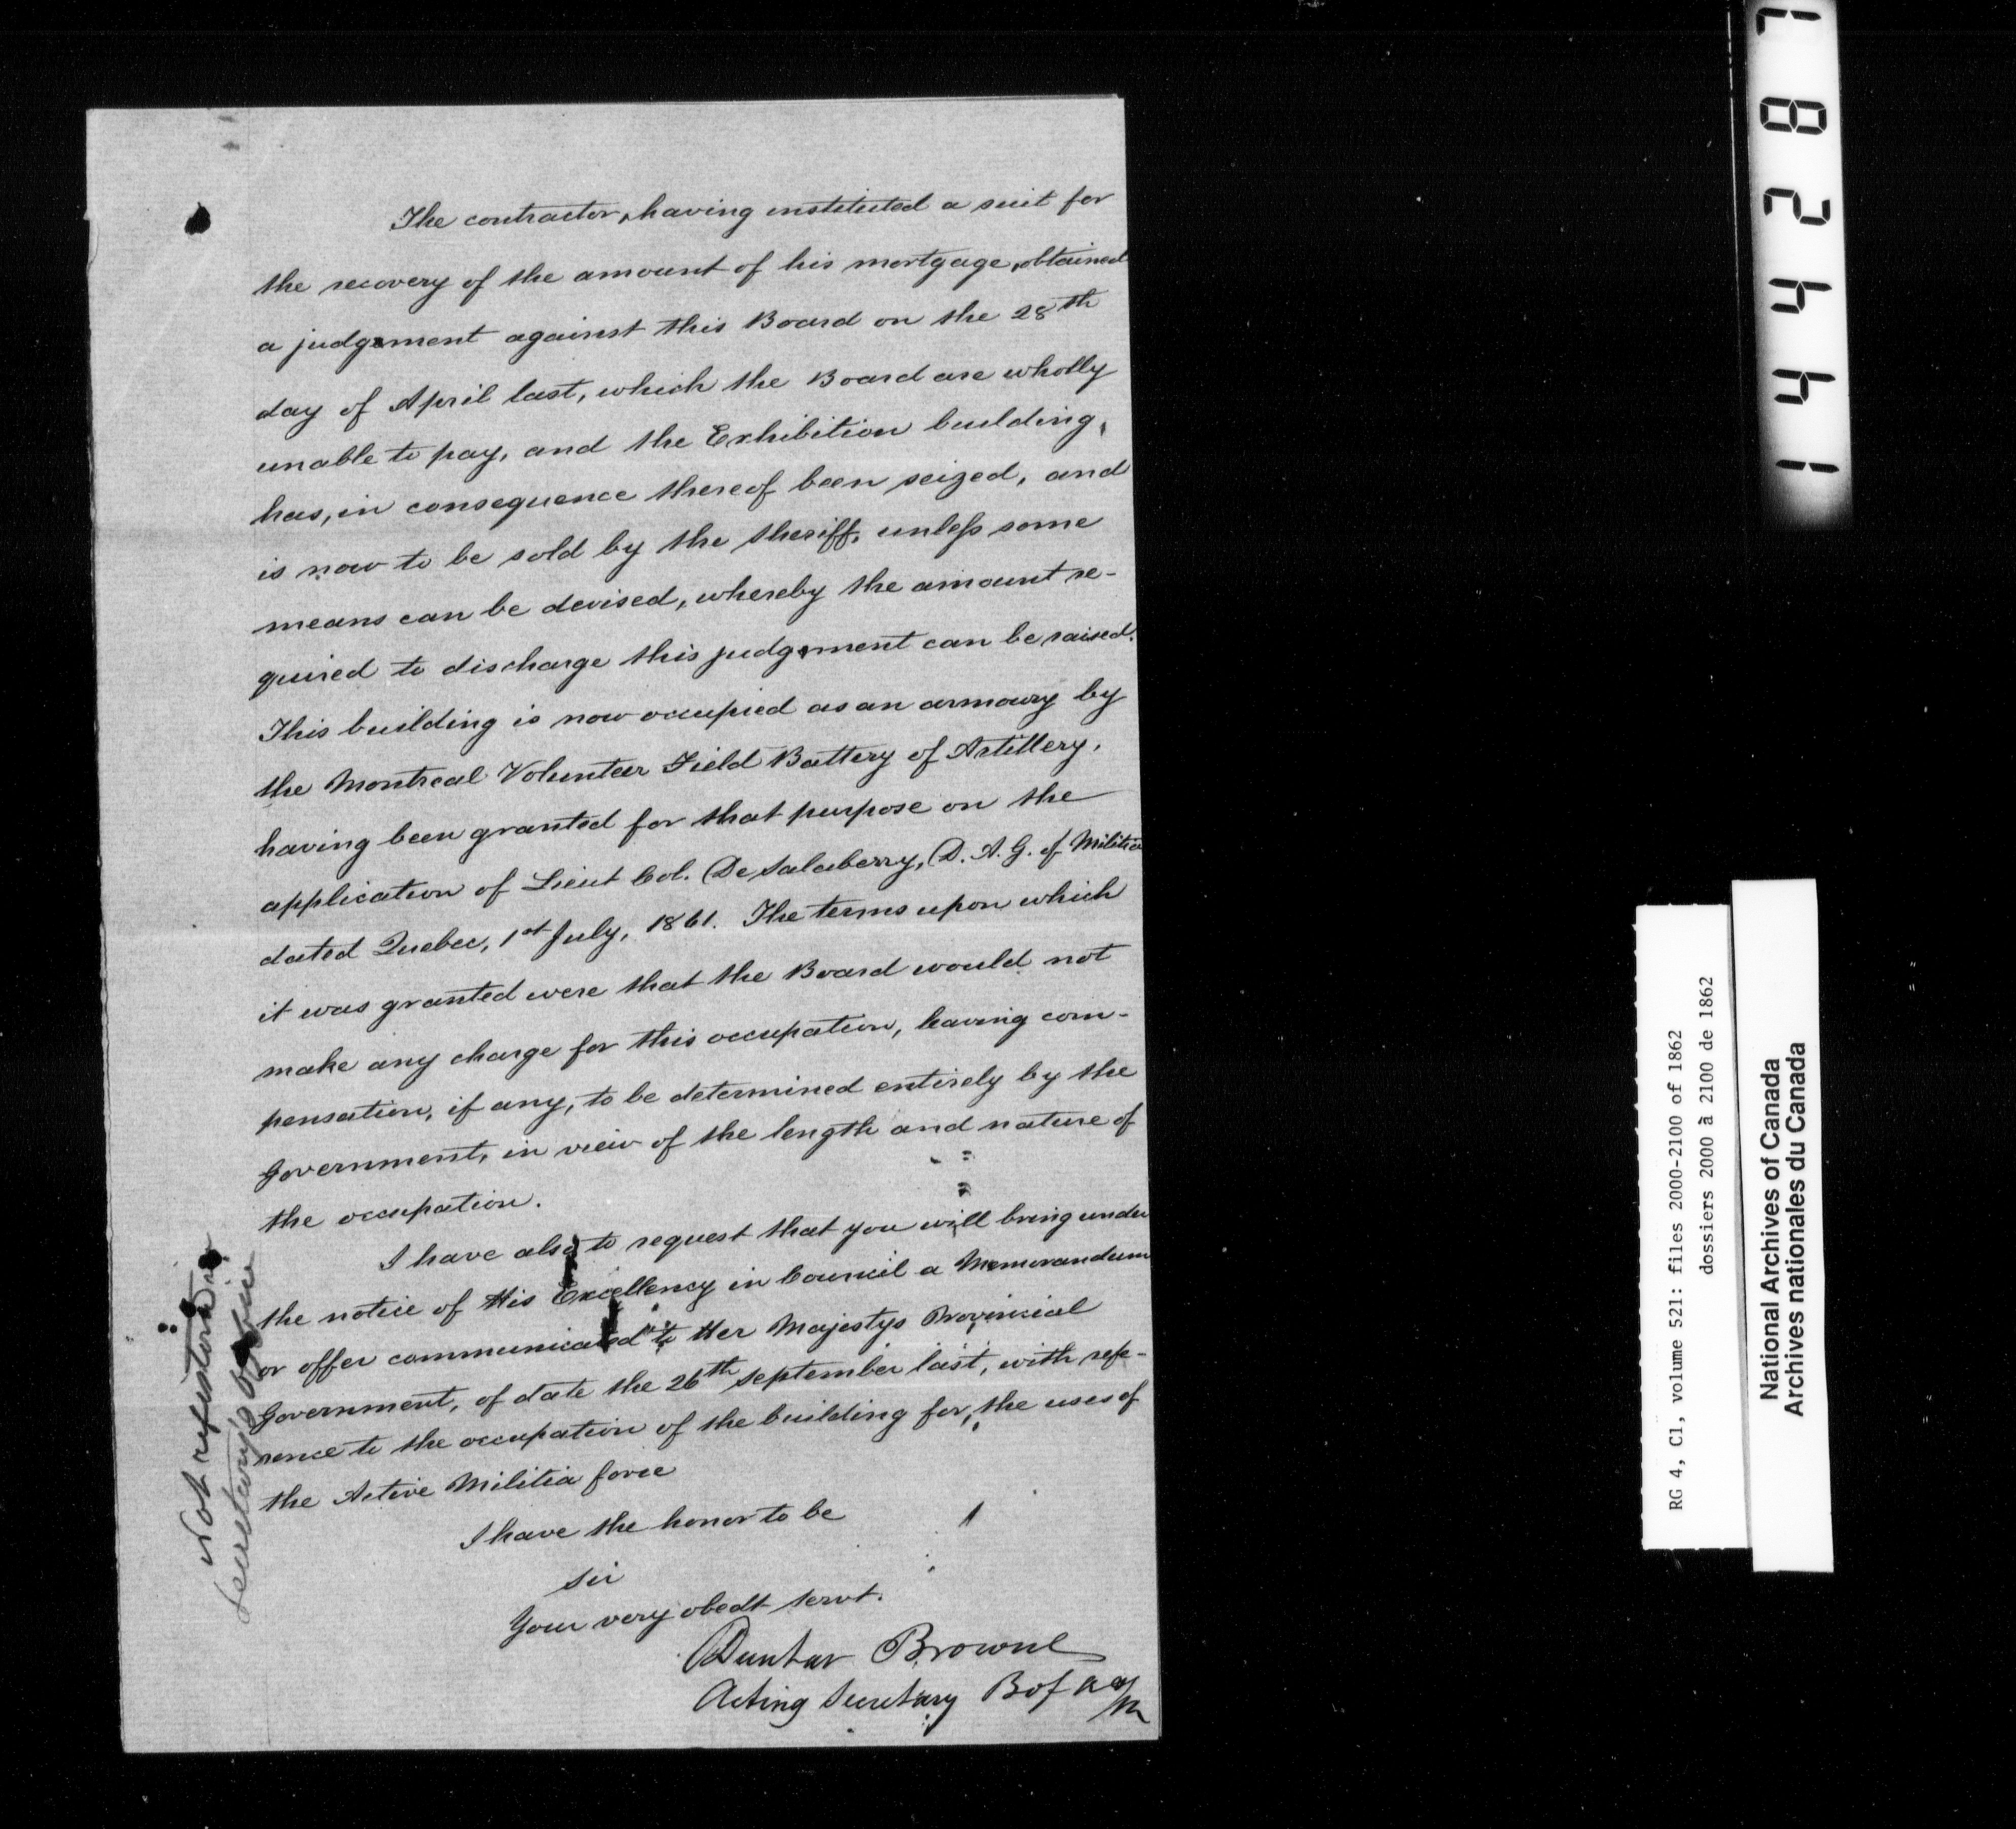 The contractor, having instituted a suit for
the recovery of the amount of his mortgage, obtained
a judgement against this Board on the 28th
day of April last, which the Board are wholly
unable to pay, and the Exhibition building,
has, in consequence thereof been seized, and
is now to be sold by the Sheriff, unless some
means can be devised, whereby the amount re-
quired to discharge this judgement can be raised.
This building is now occupied as an armoury by
the Montreal Volunteer Field Battery of Artillery,
having been granted for that purpose on the
application of Lieut Col. De Salaberry, D. A. G. of Militia
dated Quebec, 1st July, 1861. The terms upon which
it was granted were that the Board would not
make any charge for this occupation, leaving com-
pensation, if any, to be determined entirely by the
Government, in view of the length and nature of
the occupation.
I have also to request that you will bring under
the notice of His Excellency in Council a Memorandum
or offer communicated to Her Majestys Provincial
Government, of date the 26th September last, with refe-
rence to the occupation of the building for, the uses of
the Active Militia force
I have the honor to be
Sir
Your very obedt servt.
Dunbar Browne
Acting Secretary B of A
Not refused in
Secretary's Office
1 4 4 2 8 7
RG 4, C1, volume 521: files 2000-2100 of 1862
dossiers 2000 à 2100 de 1862
National Archives of Canada
Archives nationales du Canada